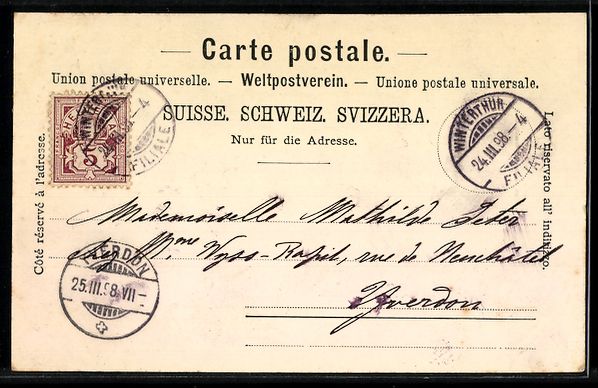 Carte postale.
Union postale universelle. — Weltpostverein. — Unione postale universale.
SUISSE. SCHWEIZ. SVIZZERA.
Nur für die Adresse.
Côté réservé à l'adresse.
Lato riservato all' indirizzo.
5
WINTERTHUR
24.III.98.–4
FILIALE
WINTERTHUR
24.III.98.–4
FILIALE
Mademoiselle Mathilde Peter
Mme Wyss-Rapit, rue de Neuchâtel
Yverdon
YVERDON
25.III.98.VII–